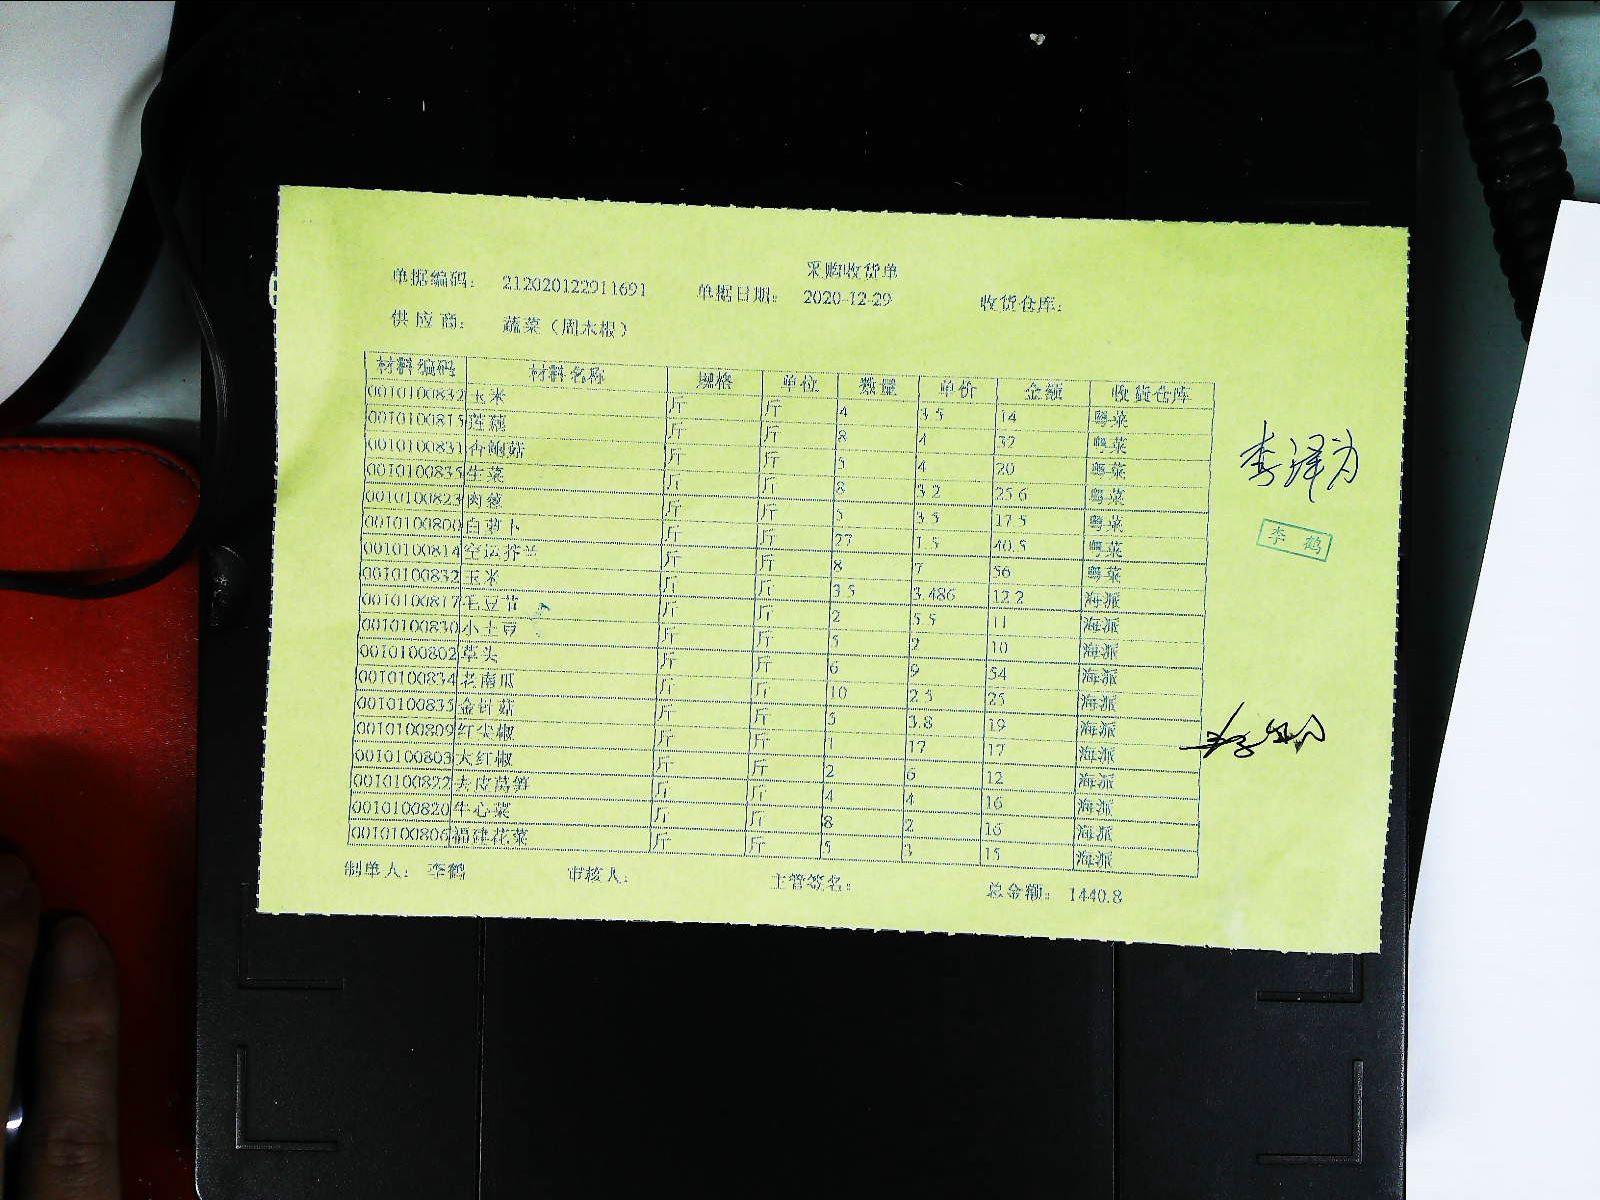 采购收货单
单据编码： 212020122911691 单据日期： 2020-12-29 收货仓库：
供应商： 蔬菜（周木根）
材料编码 材料名称 规格 单位 数量 单价 金额 收货仓库
0010100832 玉米 斤 斤 4 3.5 14 粤菜
0010100815 莲藕 斤 斤 8 4 32 粤菜
0010100831 香菇 斤 斤 5 4 20 粤菜
0010100835 生菜 斤 斤 8 3.2 25.6 粤菜
0010100823 肉葱 斤 斤 5 3.5 17.5 粤菜
0010100800 白萝卜 斤 斤 27 1.5 40.5 粤菜
0010100814 空运芥兰 斤 斤 8 7 56 粤菜
0010100832 玉米 斤 斤 3.5 3.486 12.2 海派
0010100817 毛豆节 斤 斤 2 5.5 11 海派
0010100830 小土豆 斤 斤 5 2 10 海派
0010100802 草头 斤 斤 6 9 54 海派
0010100834 老南瓜 斤 斤 10 2.5 25 海派
0010100835 金针菇 斤 斤 5 3.8 19 海派
0010100809 红尖椒 斤 斤 1 17 17 海派
0010100803 大红椒 斤 斤 2 6 12 海派
0010100822 去皮莴笋 斤 斤 4 4 16 海派
0010100820 牛心菜 斤 斤 8 2 16 海派
0010100806 福建花菜 斤 斤 5 3 15 海派
制单人： 李鹤 审核人： 主管签名： 总金额： 1440.8
李泽为
李鹤